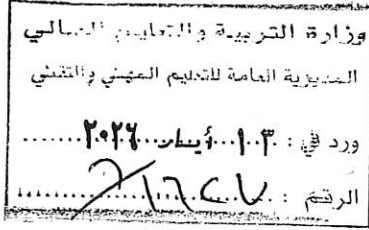 وزارة التربية والتعليم العالي
المديرية العامة للتعليم المهني والتقني
ورد في : أيار ٢٠٢٦
الرقم : ١٦٢٧